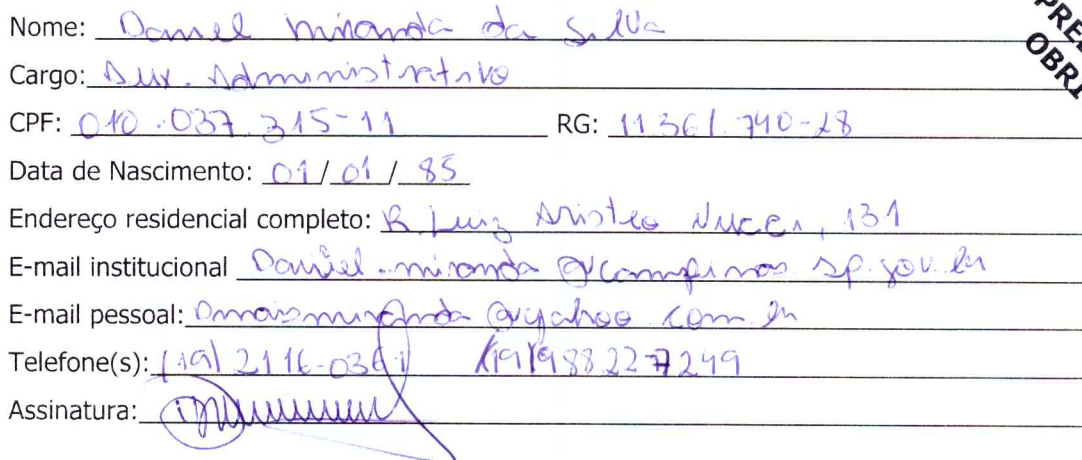 Nome: Daniel Miranda da Silva
Cargo: Aux. Administrativo
CPF: 010.037.315-11 RG: 11361.740-28
Data de Nascimento: 01/01/85
Endereço residencial completo: R. Luiz Aristeo Nucci, 131
E-mail institucional Daniel.miranda@campinas.sp.gov.br
E-mail pessoal: @yahoo.com.br
Telefone(s): (19) 2116-0361 (19) 98822-7249
Assinatura: